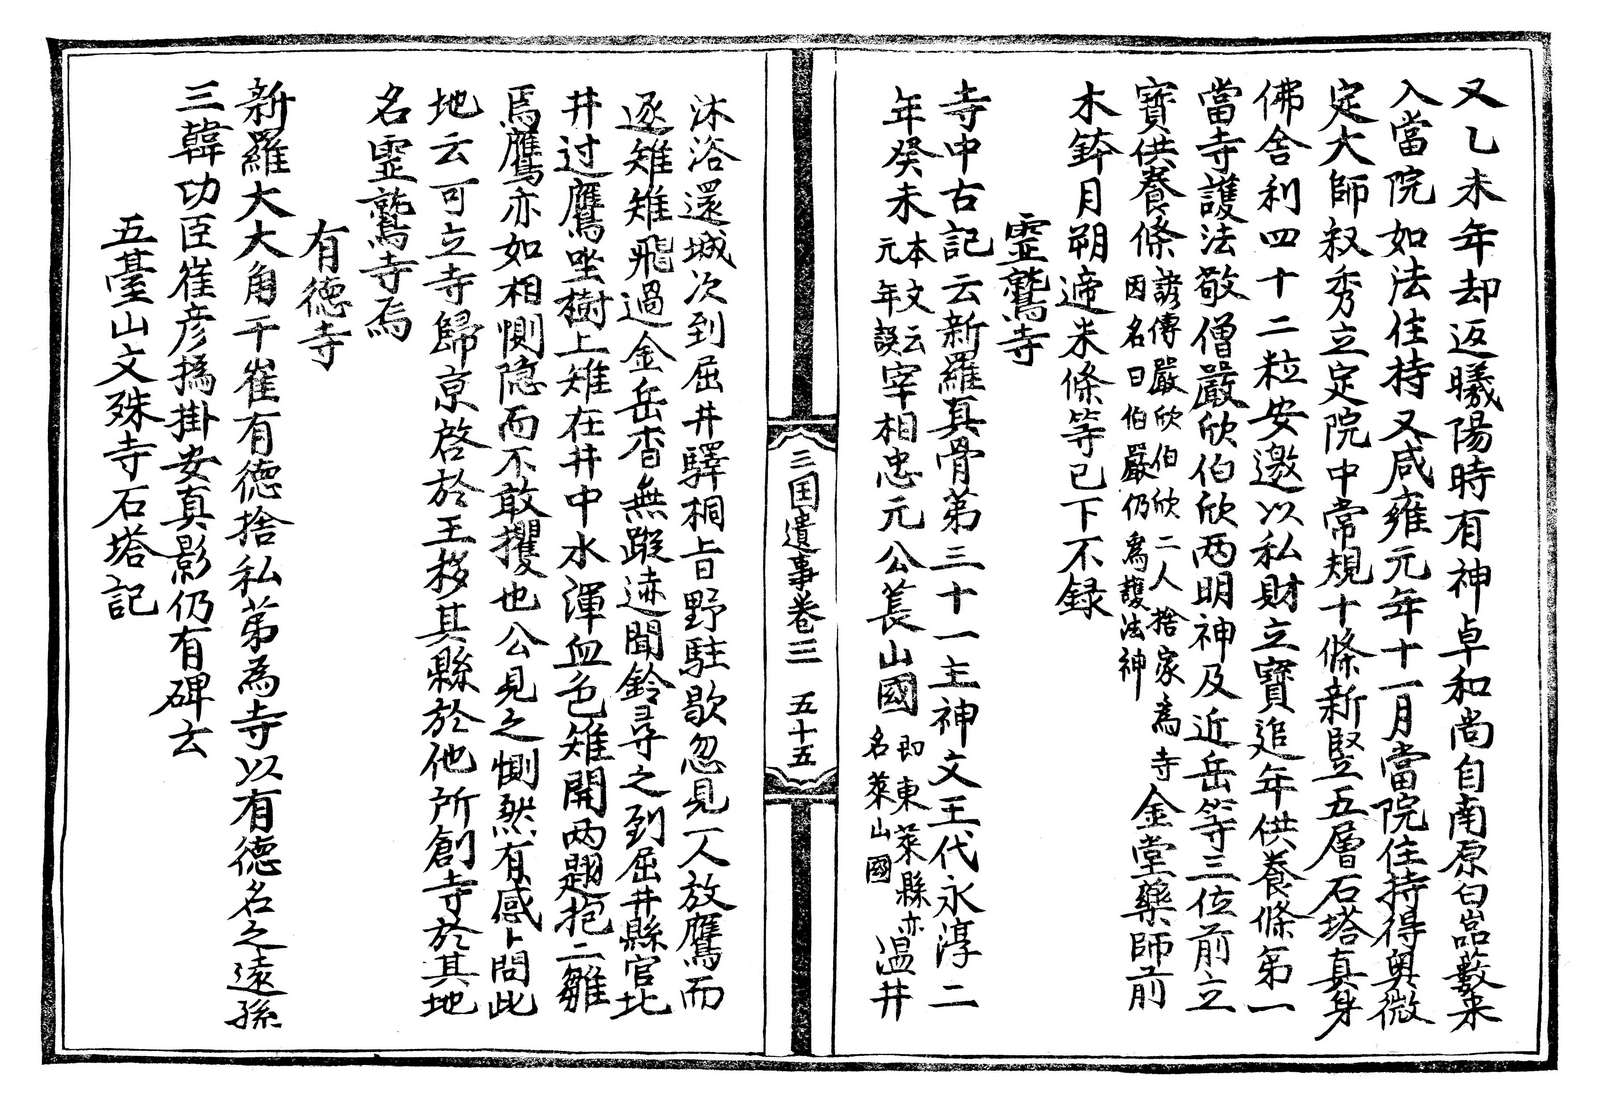 又乙未年却返曦陽時有神卓和尚自南原白嵒藪来
入當院如法住持又咸雍元年十一月當院住持得奥微
定大師叔秀立定院中常規十條新竪五層石塔真身
佛舎利四十二粒安邀以私財立寶追年供養條第一
當寺護法敬僧嚴欣伯欣两明神及近岳等三位前立
寶供養條諺傳嚴欣伯欣二人捨家為寺
因名曰伯嚴仍為護法神金堂藥師前
木鉢月朔遆米條等已下不録
霊鷲寺
寺中古記云新羅真骨第三十一主神文王代永淳二
年癸未本文云
元年誤宰相忠元公萇山國即東萊縣亦
名萊山國温井
三国遺事巻三 五十五
沐浴還城次到屈井驛桐旨野駐歇忽見一人放鷹而
逐雉雉飛過金岳杳無蹤迹聞鈴尋之到屈井縣官北
井过鷹坐樹上雉在井中水渾血色雉開两翅抱二雛
焉鷹亦如相惻隠而不敢攫也公見之惻然有感卜問此
地云可立寺歸京啓於王移其縣於他所創寺於其地
名霊鷲寺焉
有徳寺
新羅大大角干崔有徳捨私第為寺以有徳名之遠孫
三韓功臣崔彦撝掛安真影仍有碑云
五䑓山文殊寺石塔記